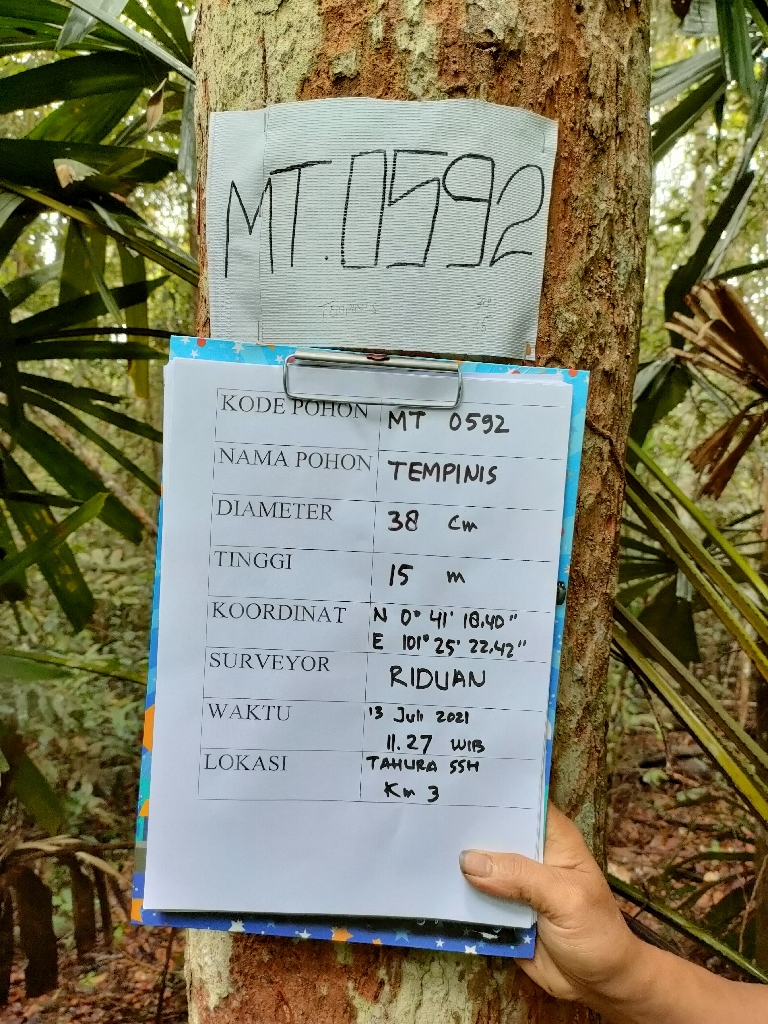 MT.0592
TEMPINIS
KODE POHON MT 0592
NAMA POHON TEMPINIS
DIAMETER 38 cm
TINGGI 15 m
KOORDINAT N 0° 41' 18,40"
E 101° 25' 22,42"
SURVEYOR RIDUAN
WAKTU 13 Juli 2021
11.27 WIB
LOKASI TAHURA SSH
Km 3